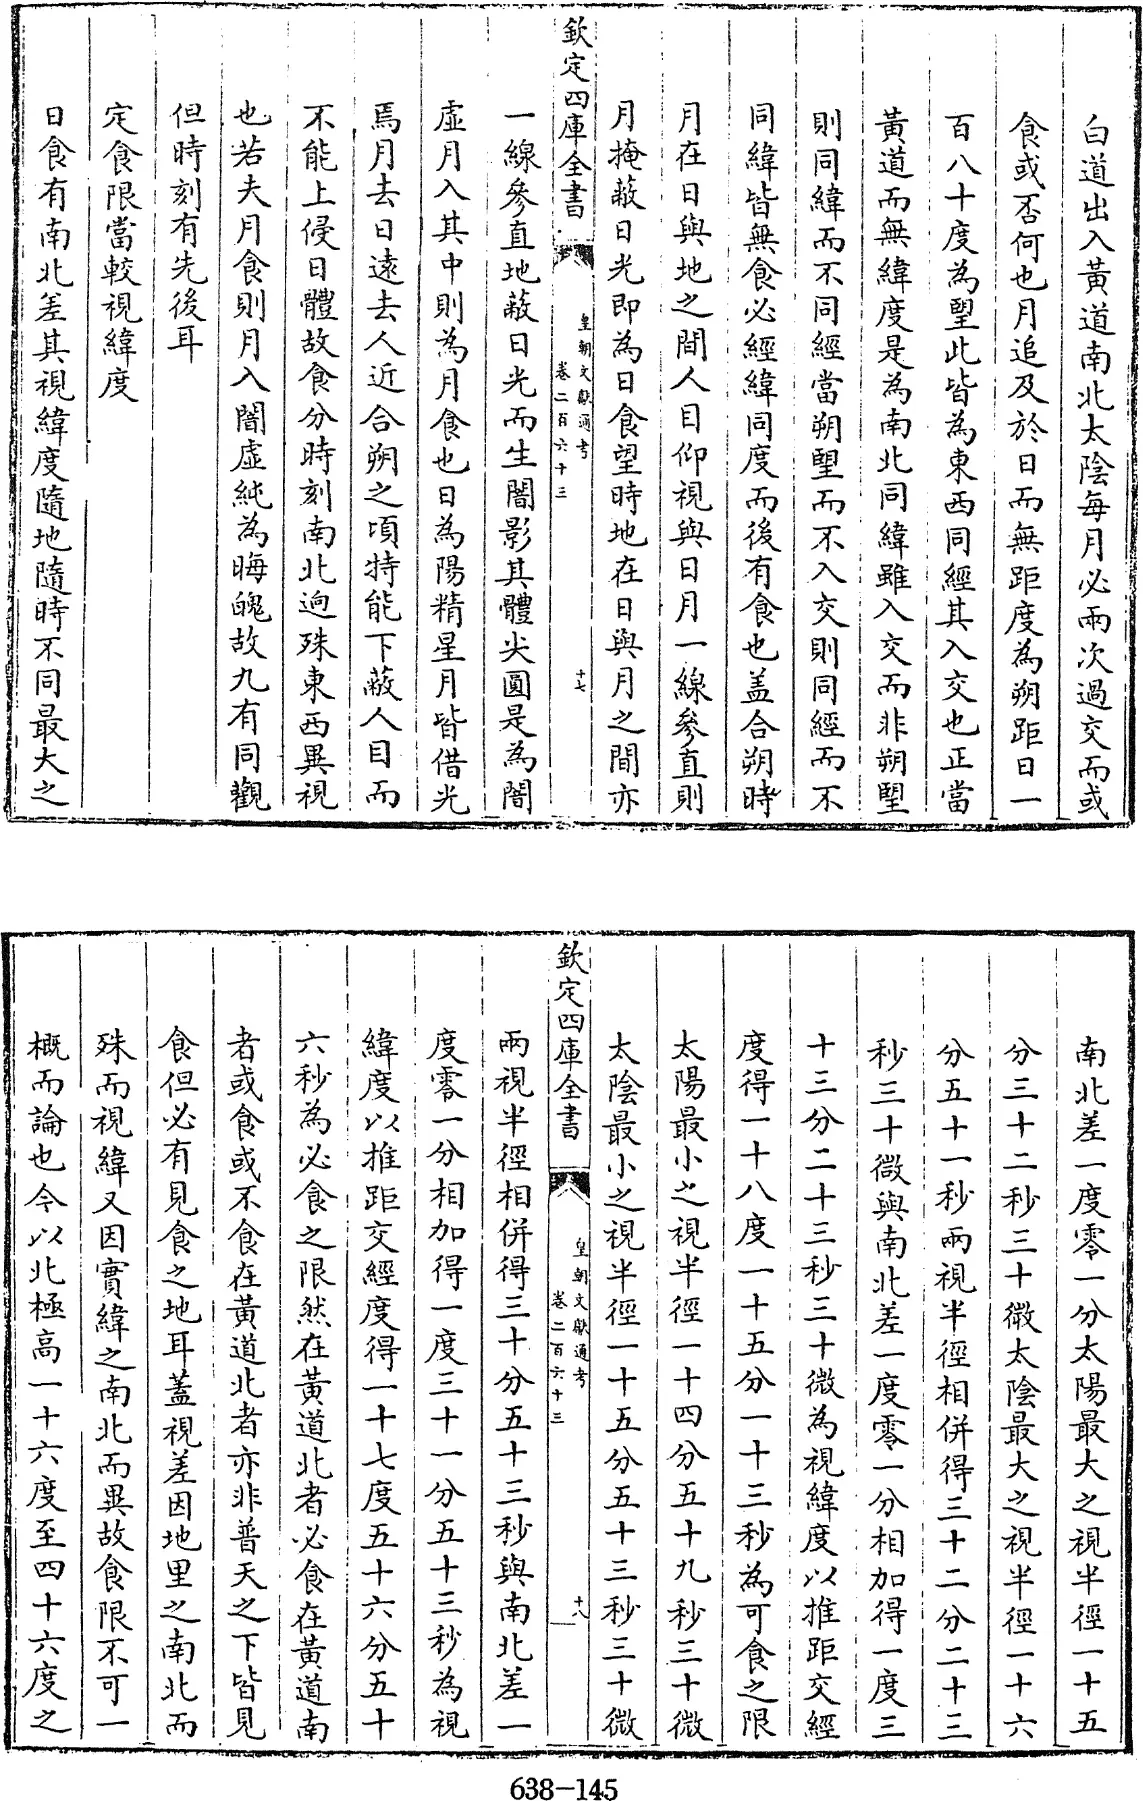 白道出入黃道南北太陰每月必兩次過交而或
食或否何也月追及於日而無距度為朔距日一
百八十度為朢此皆為東西同經其入交也正當
黃道而無緯度是為南北同緯雖入交而非朔朢
則同緯而不同經當朔朢而不入交則同經而不
同緯皆無食必經緯同度而後有食也盖合朔時
月在日與地之間人目仰視與日月一線參直則
月掩蔽日光即為日食望時地在日與月之間亦
欽定四庫全書
皇朝文獻通考
卷二百六十三
十七
一線參直地蔽日光而生闇影其體尖圓是為闇
虛月入其中則為月食也日為陽精星月皆借光
焉月去日遠去人近合朔之頃特能下蔽人目而
不能上侵日體故食分時刻南北迥殊東西異視
也若夫月食則月入闇虛純為晦魄故九有同觀
但時刻有先後耳
定食限當較視緯度
日食有南北差其視緯度隨地隨時不同最大之
南北差一度零一分太陽最大之視半徑一十五
分三十二秒三十微太陰最大之視半徑一十六
分五十一秒兩視半徑相併得三十二分二十三
秒三十微與南北差一度零一分相加得一度三
十三分二十三秒三十微為視緯度以推距交經
度得一十八度一十五分一十三秒為可食之限
太陽最小之視半徑一十四分五十九秒三十微
太陰最小之視半徑一十五分五十三秒三十微
欽定四庫全書
皇朝文獻通考
卷二百六十三
十八
兩視半徑相併得三十分五十三秒與南北差一
度零一分相加得一度三十一分五十三秒為視
緯度以推距交經度得一十七度五十六分五十
六秒為必食之限然在黃道北者必食在黃道南
者或食或不食在黃道北者亦非普天之下皆見
食但必有見食之地耳蓋視差因地里之南北而
殊而視緯又因實緯之南北而異故食限不可一
概而論也今以北極高一十六度至四十六度之
638-145